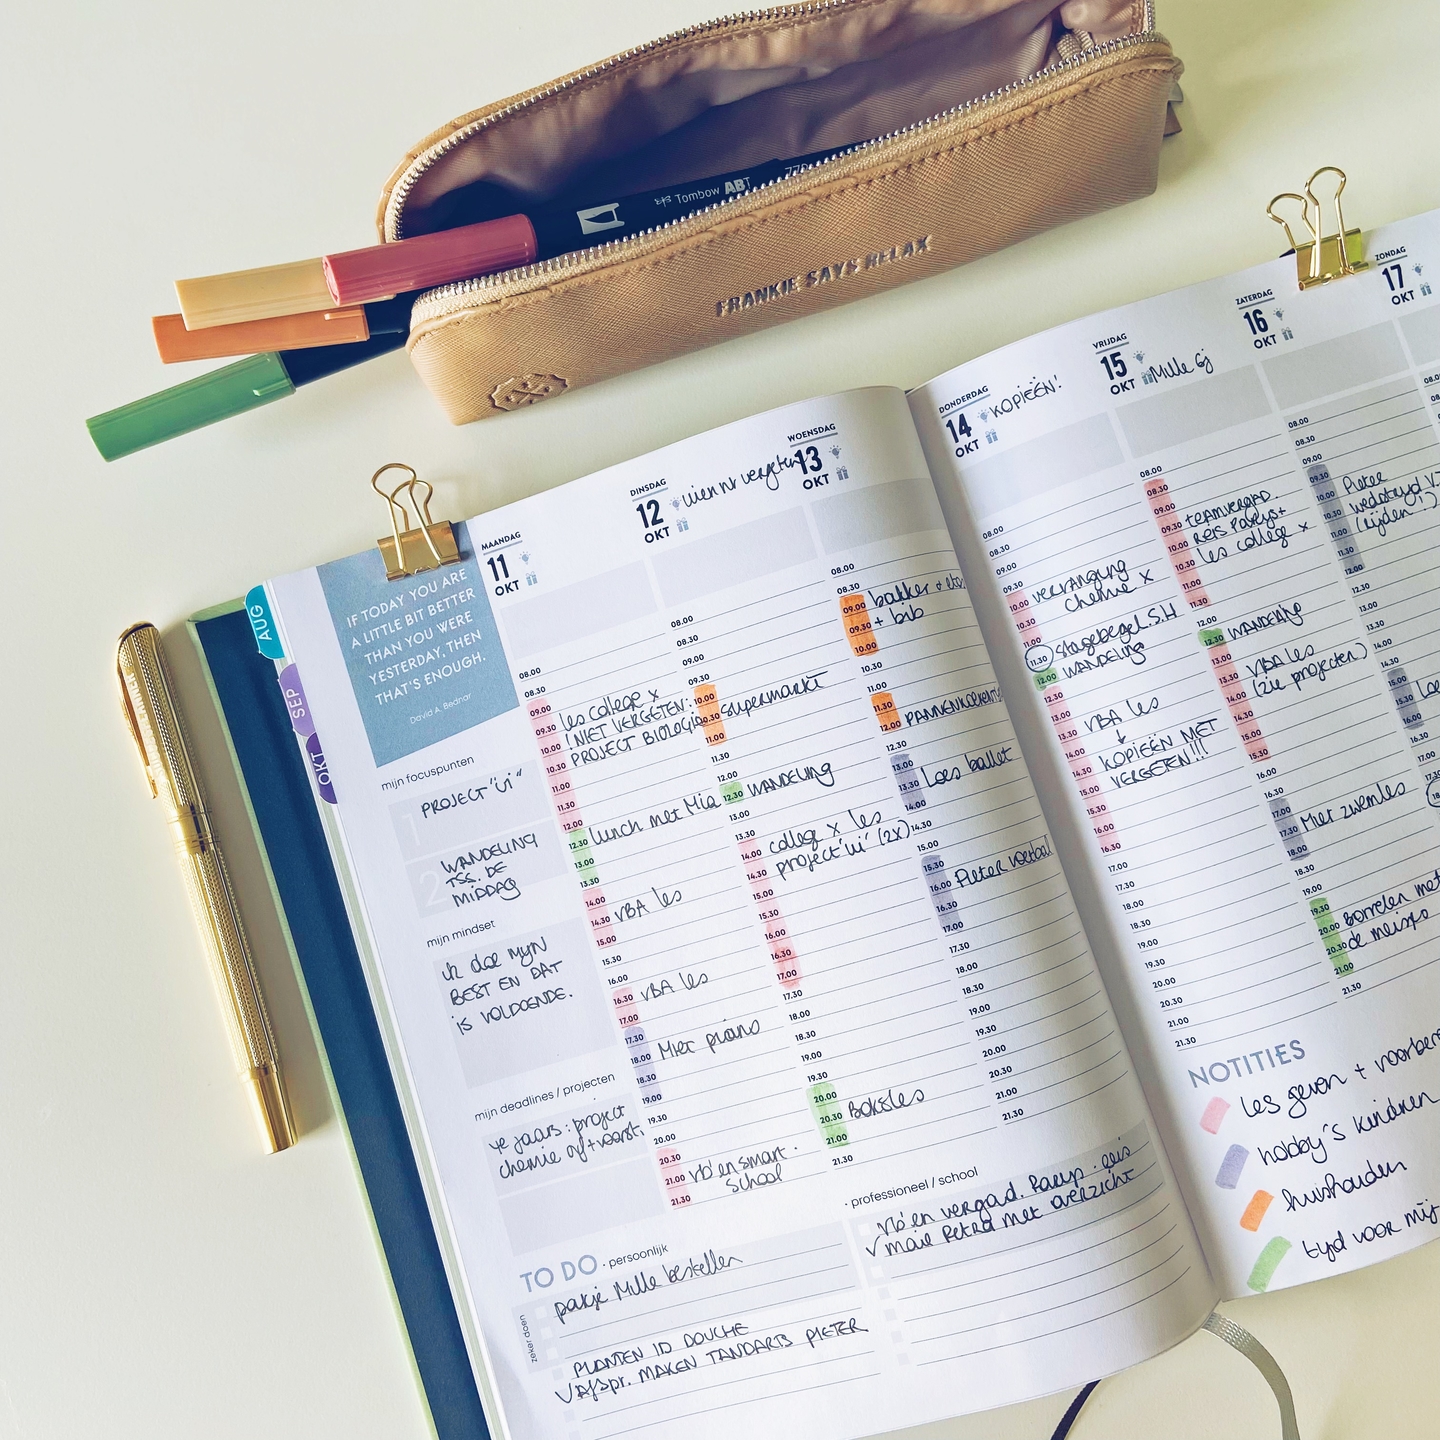 Tombow ABT
FRANKIE SAYS RELAX
AUG
SEP
OKT
IF TODAY YOU ARE
A LITTLE BIT BETTER
THAN YOU WERE
YESTERDAY, THEN
THAT'S ENOUGH.
David A. Bednar
mijn focuspunten
PROJECT "ui"
WANDELING
TSS. DE
MIDDAG
mijn mindset
ik doe MIJN
BEST EN DAT
is VOLDOENDE.
mijn deadlines / projecten
4e jaars: project
chemie
MAANDAG
11
OKT
08.00
08.30
09.00
09.30
10.00
10.30
11.00
11.30
12.00
12.30
13.00
13.30
14.00
14.30
15.00
15.30
16.00
16.30
17.00
17.30
18.00
18.30
19.00
20.00
20.30
21.00
21.30
les college x
! NIET VERGETEN:
PROJECT BIOLOGIE
lunch met Mia
VBA les
VBA les
Miet piano
vb'en smart.
school
DINSDAG
12
OKT
vergeten
08.00
08.30
09.00
09.30
10.00
10.30
11.00
11.30
12.00
12.30
13.00
13.30
14.00
14.30
15.00
15.30
16.00
16.30
17.00
17.30
18.00
18.30
19.00
19.30
20.00
20.30
21.00
21.30
supermarkt
WANDELING
college x les
project "ui" (2x)
Boksles
WOENSDAG
13
OKT
08.00
08.30
09.00
09.30
10.00
10.30
11.00
11.30
12.00
12.30
13.00
14.00
14.30
15.00
15.30
16.00
16.30
17.00
17.30
18.00
18.30
19.00
19.30
20.00
20.30
21.00
21.30
bakker + etc.
+ bib
Loes ballet
Pieter voetbal
TO DO · persoonlijk
zeker doen
pakje Mille bestellen
PLANTEN ID DOUCHE
√ Afspr. MAKEN TANDARTS PIETER
· professioneel / school
vb'en vergad. Parijs · reis
√ mail Petra met overzicht
DONDERDAG
14
OKT
KOPIEËN!
08.00
08.30
09.00
09.30
10.00
10.30
11.00
11.30
12.00
12.30
13.00
13.30
14.00
14.30
15.00
15.30
16.00
16.30
17.00
17.30
18.00
18.30
19.00
19.30
20.00
20.30
21.00
21.30
vervanging
chemie x
stagebegel. S.H
WANDELING
VBA les
↓
KOPIEËN NIET
VERGETEN!!!
VRIJDAG
15
OKT
Mille 6j
08.00
08.30
09.00
09.30
10.00
10.30
11.00
11.30
12.00
12.30
13.00
13.30
14.00
14.30
15.00
15.30
16.00
16.30
17.00
17.30
18.00
18.30
19.00
19.30
20.00
20.30
21.00
21.30
TEAMVERGAD.
REIS PARIJS +
les college x
WANDELING
VBA les
(2u projecten)
Miet zwemles
Borrelen met
de meisjes
ZATERDAG
16
OKT
08.00
08.30
09.00
09.30
10.00
10.30
11.00
11.30
12.00
12.30
13.00
13.30
14.00
14.30
15.00
15.30
16.00
Pieter
wedstrijd
(rijden!)
ZONDAG
17
OKT
NOTITIES
les geven +
hobby's kinderen
huishouden
tijd voor